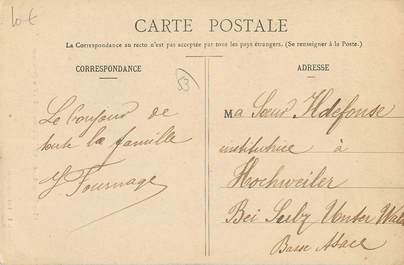 Lot
CARTE POSTALE
La Correspondance au recto n'est pas acceptée par tous les pays étrangers. (Se renseigner à la Poste.)
CORRESPONDANCE
53
Le bonjour de
toute la famille
J Fournage
ADRESSE
Ma Sœur Ildefonse
institutrice à
Hochweiler
Bei Sulz Unter Wald
Basse Alsace